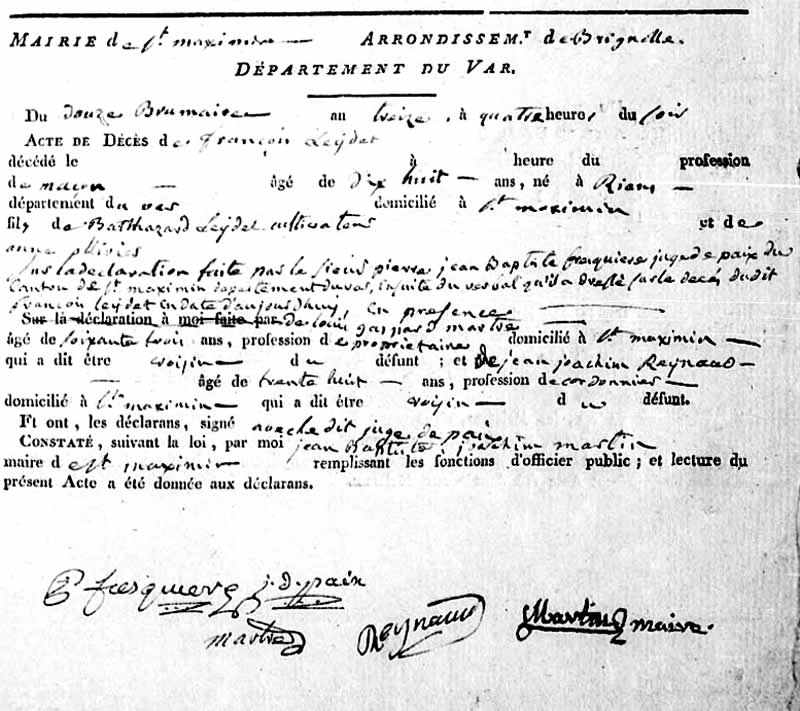 MAIRIE de St. maximin — ARRONDISSEM.T de Brignolle.
DÉPARTEMENT DU VAR.
Du douze Brumaire an treize, à quatre heures du soir
ACTE DE DÉCÈS de françois Leydet
décédé le à heure du profession
de maçon — âgé de dix huit — ans, né à Rians —
département du var domicilié à St. maximin
fils de Balthazard Leydet cultivateur et de
anne ollivier
sur la declaration faite par le sieur pierre jean Baptiste fresquiere juge de paix du
Canton de St. maximin departement du var, ensuite du verbal qu'il a dressé sur le decés dudit
françois leydet en date d'aujourdhuy, En presence
Sur la déclaration à moi faite par de louis gaspard martre
âgé de soixante trois ans, profession de proprietaire domicilié à St. maximin —
qui a dit être voisin — du défunt ; et de jean joachim Reynaud —
— âgé de trente huit — ans, profession de cordonnier —
domicilié à St. maximin qui a dit être voisin — du défunt.
Et ont, les déclarans, signé avec le dit juge de paix
CONSTATÉ, suivant la loi, par moi jean Baptiste joachim martin
maire de St. maximin remplissant les fonctions d'officier public ; et lecture du
présent Acte a été donnée aux déclarans.
fresquiere j. de paix
martre Reynaud Martin maire.